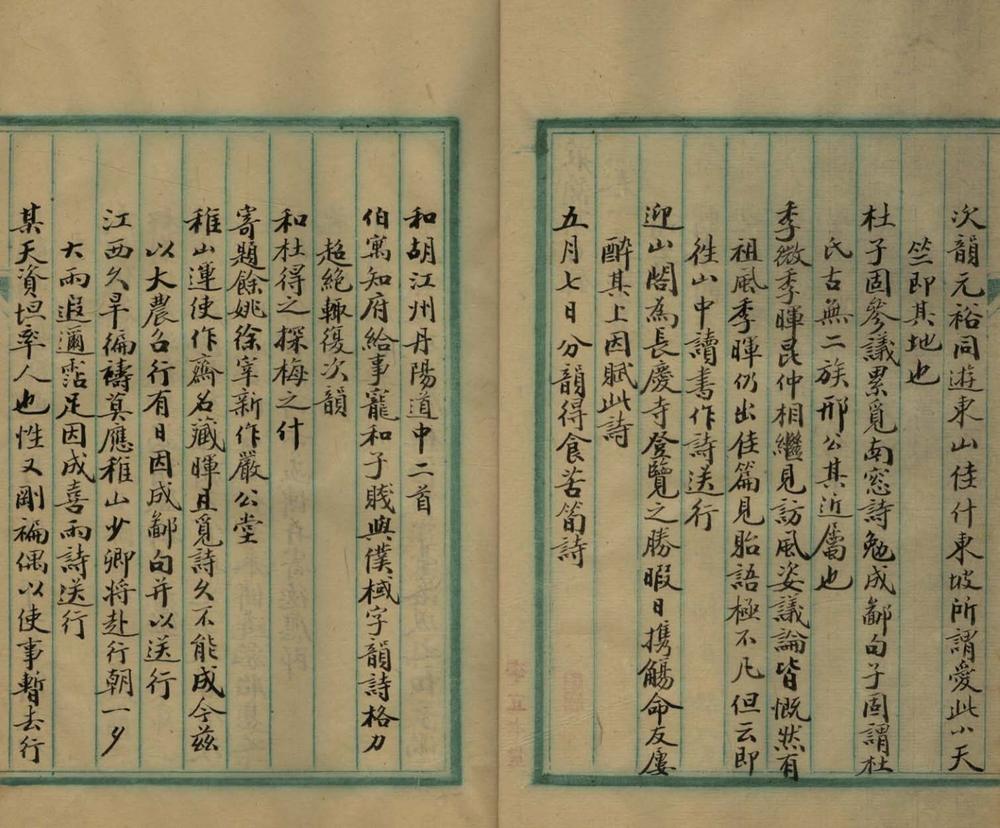 次韻元裕同遊東山佳什東坡所謂愛此小天
竺即其地也
杜子固參議累覓南窓詩勉成鄙句子固謂杜
氏古無二族邢公其近屬也
季微季暉昆仲相繼見訪風姿議論皆慨然有
祖風季暉仍出佳篇見胎語極不凡但云即
徃山中讀書作詩送行
迎山閣為長慶寺登覽之勝暇日携觴命友屢
醉其上因賦此詩
五月七日分韻得食苦筍詩
和胡江州丹陽道中二首
伯寓知府給事寵和子賤與僕棫字韻詩格力
超絶輙復次韻
和杜得之探梅之什
寄題餘姚徐宰新作嚴公堂
稚山運使作齋名藏暉且覓詩久不能成今兹
以大農召行有日因成鄙句并以送行
江西久旱徧禱莫應稚山少卿将赴行朝一夕
大雨遐邇霑足因成喜雨詩送行
某天資坦率人也性又剛褊偶以使事暫去行